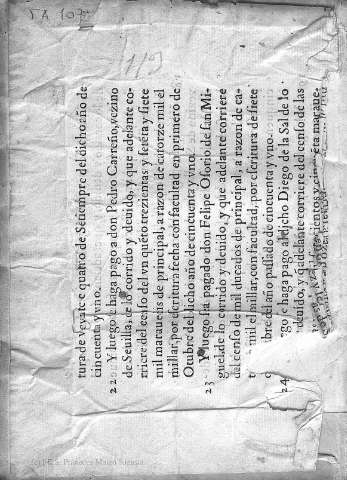 tura de veynte e quatro de Setiembre del dicho año de
cincuenta y vno.
22 Y luego se haga pago a don Pedro Carreño, vezino
de Seuilla, de lo corrido y deuido, y que adelante co-
rriere del censo del vn quẽto trezientas y setẽta y siete
mil marauedis de principal, a razon de catorze mil el
millar, por escritura fecha con facultad en primero de
Otubre del dicho año de cincuenta y vno.
23 Y luego sea pagado don Felipe Osorio de san Mi-
guel de lo corrido y deuido, y que adelante corriere
del censo de mil ducados de principal, a razon de ca-
mil el millar, con facultad, por escritura de siete
bre del año passado de cincuenta y vno.
24 ego se haga pago al dicho Diego de la Sal de lo
deuido, y q̃ adelante corriere del censo de las
cientos y cinquẽta maraue-